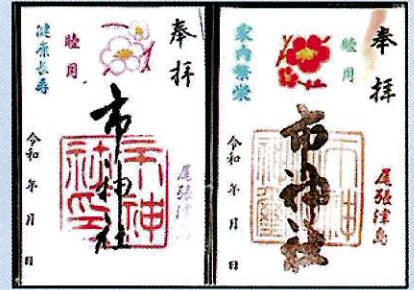 奉拝
睦月
健康長寿
市神社
尾張津島
令和 年 月 日
奉拝
睦月
家内繁栄
市神社
尾張津島
令和 年 月 日